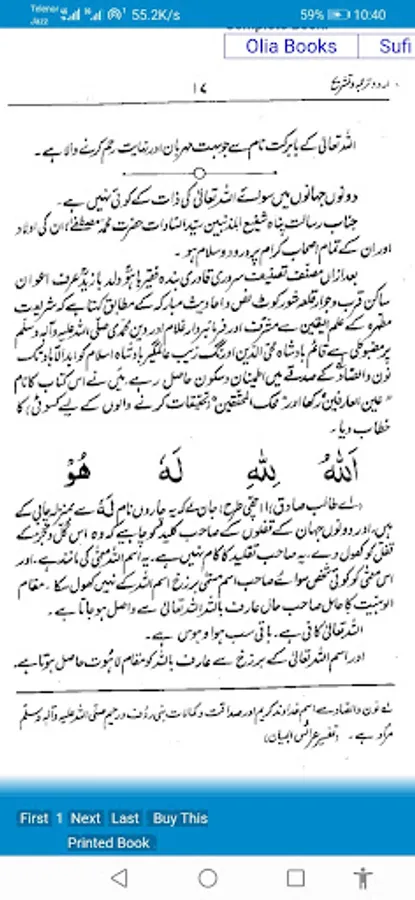 Telenor
Jazz
55.2K/s
59%
10:40
Complete Book:
Olia Books
Sufi
اردو ترجمہ و تشریح
۱۷
اللہ تعالیٰ کے بابرکت نام سے جو بہت مہربان اور نہایت رحم کرنے والا ہے۔
دونوں جہانوں میں سوائے اللہ تعالیٰ کی ذات کے کوئی نہیں ہے۔
جناب رسالت پناہ شفیع المذنبین سید السادات حضرت محمد مصطفےٰ، ان کی اولاد
اور ان کے تمام اصحاب کرام پر درود و سلام ہو۔
بعد ازاں مصنف تصنیف سروری قادری بندہ فقیر باہوؒ ولد بازیدؒ عرف اعوان
ساکن قرب و جوار قلعہ شور کوٹ نص و احادیث مبارکہ کے مطابق کہتا ہے کہ شریعت
مطہرہ کے علم الیقین سے مشرف اور فرمانبردار غلام اور دین محمدی صلی اللہ علیہ وآلہ وسلم
پر مضبوطی سے قائم بادشاہ محی الدین اورنگ زیب عالمگیر بادشاہ اسلام کو ابد الآباد تک
نون والصاد کے صدقے میں اطمینان و سکون حاصل رہے، میں نے اس کتاب کا نام
"عین العارفین" رکھا اور "محک المحققین" (تحقیقات کرنے والوں کے لیے کسوٹی) کا
خطاب دیا۔
اَللّٰهُ لِلّٰهِ لَهٗ هُوْ
(اے طالب صادق) (اچھی طرح) جان لے کہ یہ چاروں نام لَهٗ سے بمنزلہ چابی کے
ہیں، اور دونوں جہان کے قفلوں کے صاحب کلید کو چاہیے کہ وہ اس گنج کے
قفل کو کھول دے۔ یہ صاحب تقلید کا کام نہیں ہے۔ یہ اسم اللہ معمٰی کی مانند ہے۔ اور
اس معمٰی کو کوئی شخص سوائے صاحب اسم مسمّٰی برزخ اسم اللہ کے نہیں کھول سکتا۔ مقام
الوہیت کا حامل صاحب حال عارف باللہ اللہ تعالیٰ سے واصل ہو جاتا ہے۔
اللہ تعالیٰ کافی ہے۔ باقی سب ہوا و ہوس ہے۔
اور اسم اللہ تعالیٰ کے برزخ سے عارف باللہ کو مقام لاہوت حاصل ہوتا ہے۔
لہ نون والصاد سے اسم خداوند کریم اور صداقت و کمالات نبی رؤف و رحیم صلی اللہ علیہ وآلہ وسلم
مراد ہے۔ (تفسیر عرائس البیان)
First 1 Next Last Buy This
Printed Book